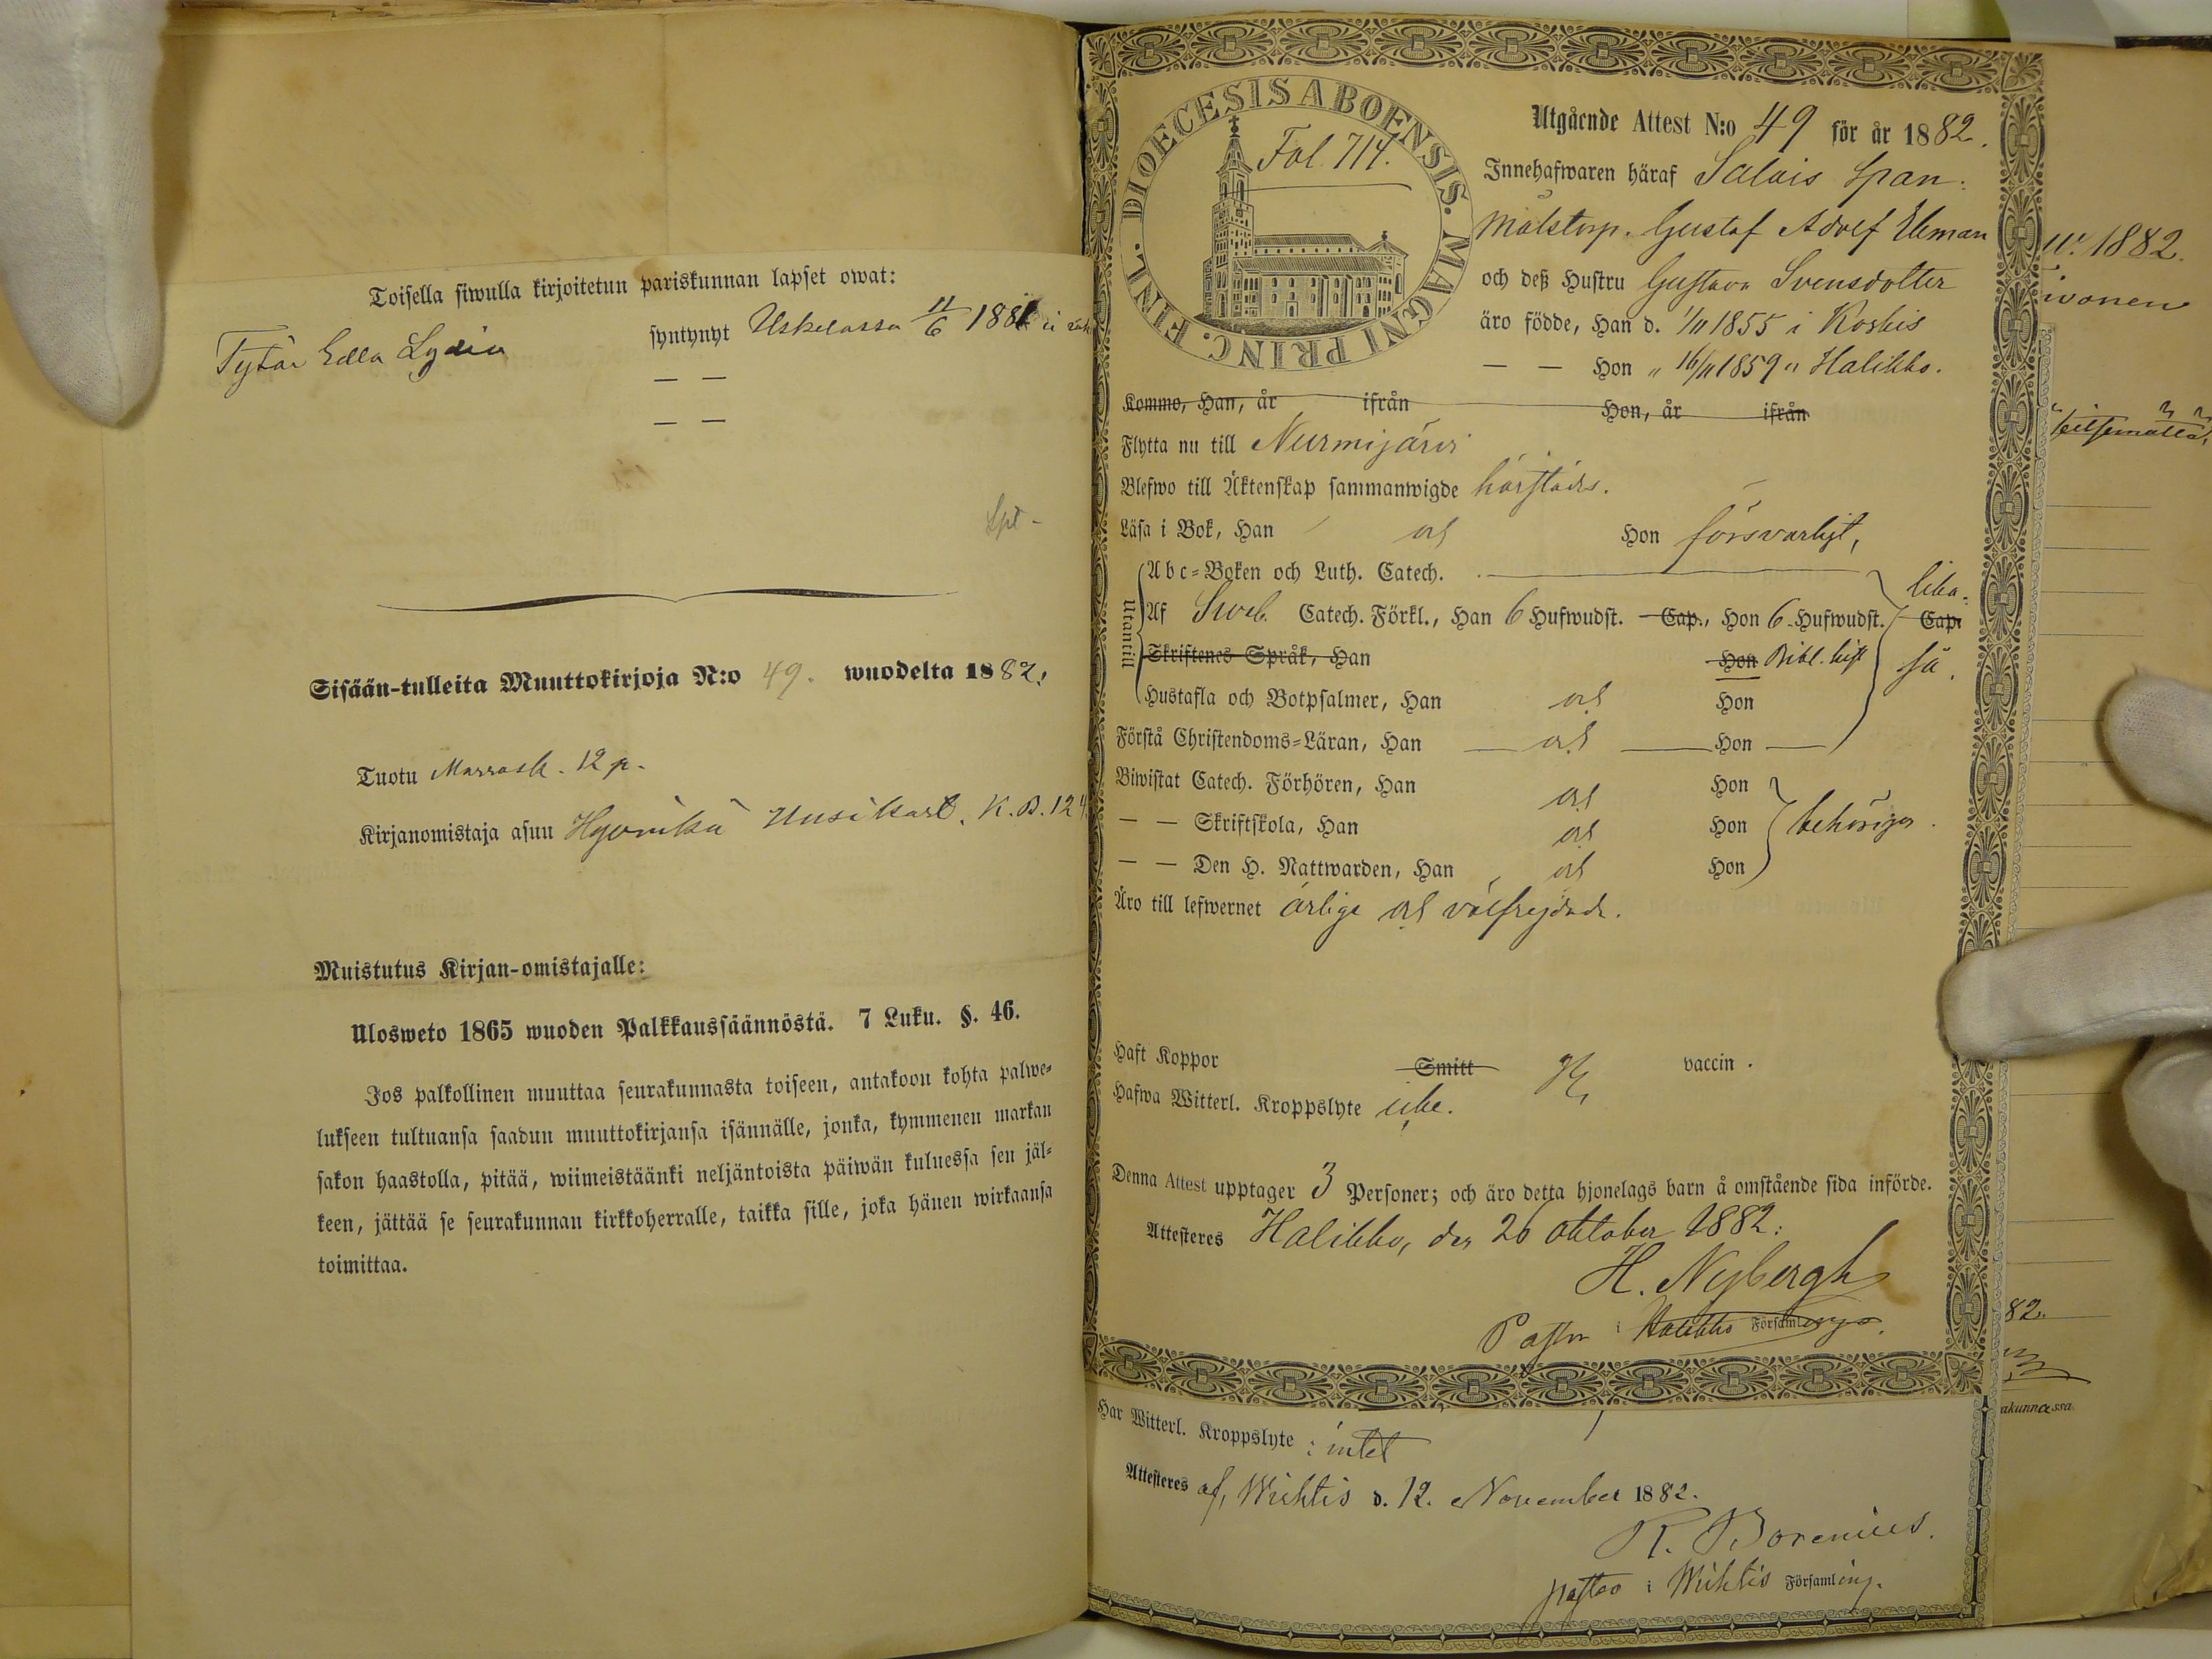 Toisella siwulla kirjoitetun pariskunnan lapset owat:
Tytär Edla Lydia syntynyt Uskelassa 11/6 1881
— —
— —
Sisään-tulleita Muuttokirjoja N:o 49. wuodelta 1882.
Tuotu Marrask. 12 p.
Kirjanomistaja asuu Hyvinkää Uusikart. K.B. 124
Muistutus Kirjan-omistajalle:
Ulosweto 1865 wuoden Palkkaussäännöstä. 7 Luku. §. 46.
Jos palkollinen muuttaa seurakunnasta toiseen, antakoon kohta palwe-
lukseen tultuansa saadun muuttokirjansa isännälle, jonka, kymmenen markan
sakon haastolla, pitää, wiimeistäänki neljäntoista päiwän kuluessa sen jäl-
keen, jättää se seurakunnan kirkkoherralle, taikka sille, joka hänen wirkaansa
toimittaa.
DIOECESIS ABOENSIS. MAGNI PRINC. FINL.
Fol. 714.
Utgående Attest N:o 49 för år 1882.
Innehafwaren häraf Salais Span-
målstorp. Gustaf Adolf Ekman
och deß Hustru Gustava Svensdotter
äro födde, Han d. 1/11 1855 i Koskis
— — Hon " 16/11 1859 " Halikko.
Kommo, Han, år ifrån Hon, år ifrån
Flytta nu till Nurmijärvi
Blefwo till Äktenskap sammanwigde härstädes.
Läsa i Bok, Han och Hon försvarligt,
Utantill
Abc-Boken och Luth. Catech.
Af Sveb. Catech. Förkl., Han 6 Hufwudst. Cap., Hon 6 Hufwudst. Cap.
lika-
Skriftenes Språk, Han Hon Bibl. hist så.
Hustafla och Botpsalmer, Han och Hon
Förstå Christendoms-Läran, Han och Hon
Biwistat Catech. Förhören, Han och Hon
— — Skriftskola, Han och Hon behörigen.
— — Den H. Nattwarden, Han och Hon
Äro till lefwernet ärliga och välfrejdade.
Haft Koppor Smitt vaccin.
Hafwa Witterl. Kroppslyte icke.
Denna Attest upptager 3 Personer; och äro detta hjonelags barn å omstående sida införde.
Attesteres Halikko, den 26 oktober 1882:
H. Nybergh
Pastor i Halikko Församlings.
Har Witterl. Kroppslyte : intet
Attesteres af, Wichtis d. 12. November 1882.
R. Borenius.
Pastor i Wichtis Församling.
1882.
ivonen
82.
akunnassa.